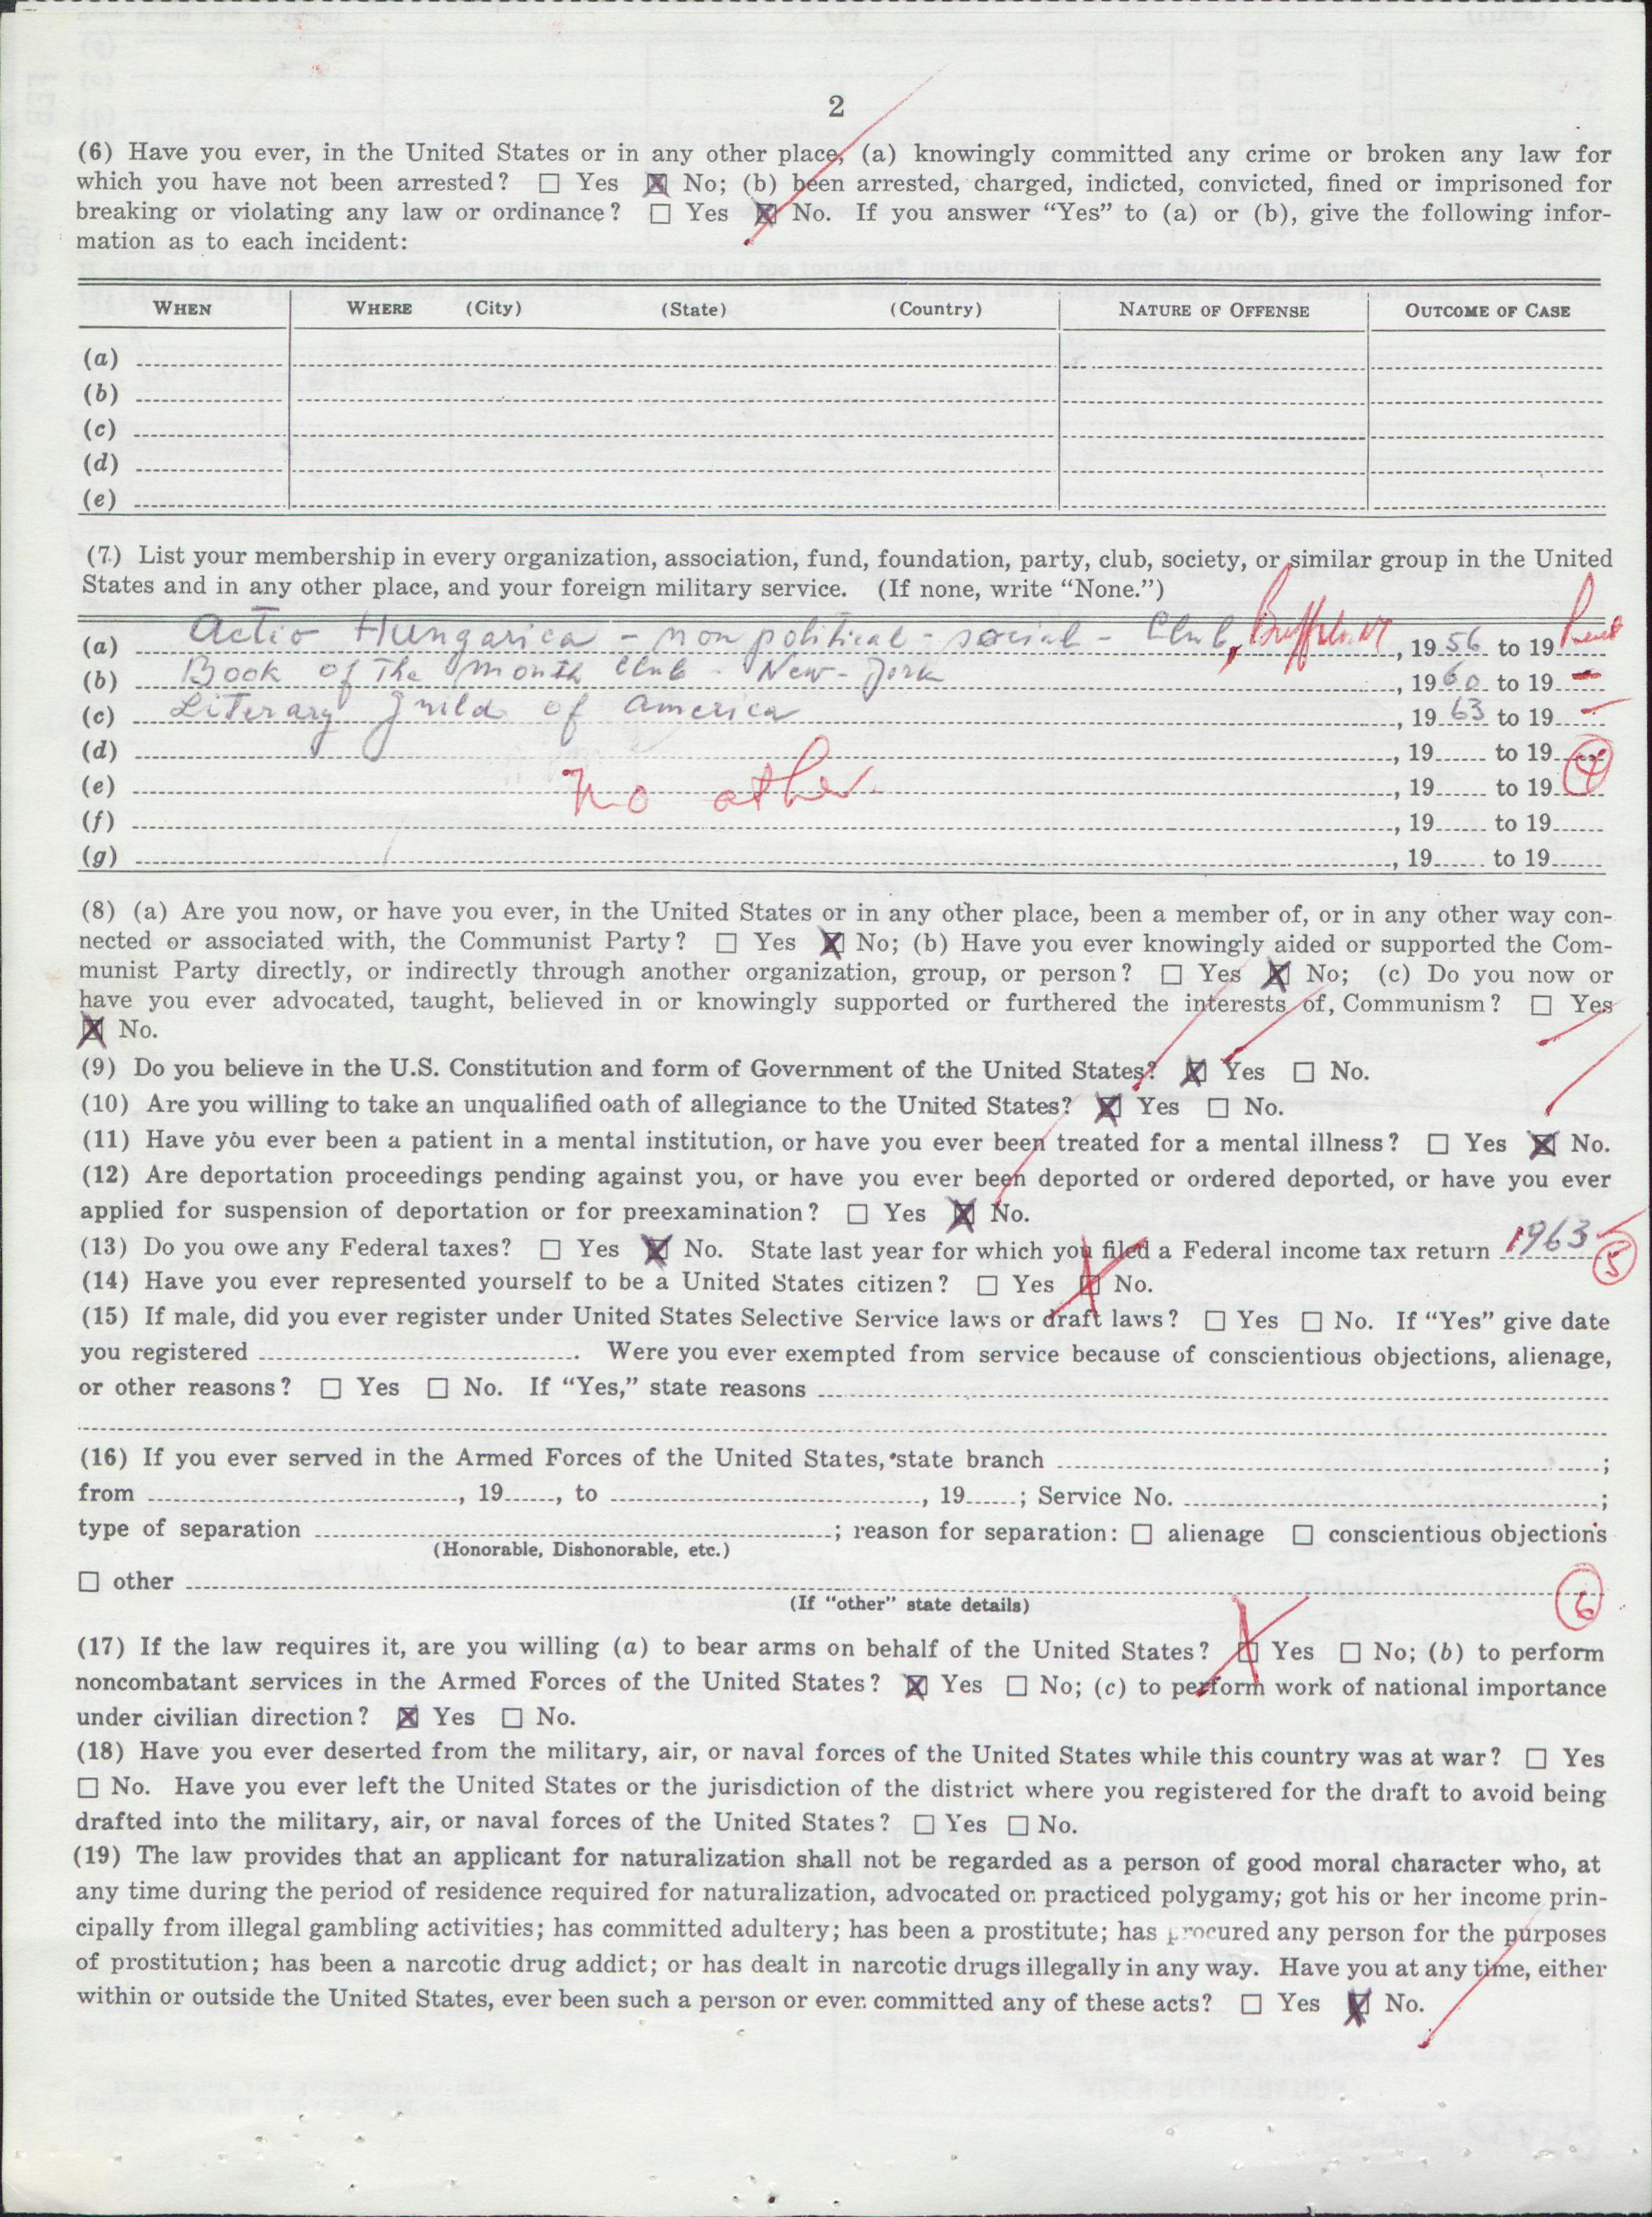 2
(6) Have you ever, in the United States or in any other place, (a) knowingly committed any crime or broken any law for
which you have not been arrested? ☐ Yes ☒ No; (b) been arrested, charged, indicted, convicted, fined or imprisoned for
breaking or violating any law or ordinance? ☐ Yes ☒ No. If you answer “Yes” to (a) or (b), give the following infor-
mation as to each incident:
WHEN WHERE (City) (State) (Country) NATURE OF OFFENSE OUTCOME OF CASE
(a)
(b)
(c)
(d)
(e)
(7) List your membership in every organization, association, fund, foundation, party, club, society, or similar group in the United
States and in any other place, and your foreign military service. (If none, write “None.”)
(a) Actio Hungarica - non political - social - Club, , 1956 to 19
(b) Book of The Month Club - New-York , 1960 to 19
(c) Literary Guild of America , 1963 to 19
(d) , 19 to 19 4
(e) No other. , 19 to 19
(f) , 19 to 19
(g) , 19 to 19
(8) (a) Are you now, or have you ever, in the United States or in any other place, been a member of, or in any other way con-
nected or associated with, the Communist Party? ☐ Yes ☒ No; (b) Have you ever knowingly aided or supported the Com-
munist Party directly, or indirectly through another organization, group, or person? ☐ Yes ☒ No; (c) Do you now or
have you ever advocated, taught, believed in or knowingly supported or furthered the interests of, Communism? ☐ Yes
☒ No.
(9) Do you believe in the U.S. Constitution and form of Government of the United States? ☒ Yes ☐ No.
(10) Are you willing to take an unqualified oath of allegiance to the United States? ☒ Yes ☐ No.
(11) Have you ever been a patient in a mental institution, or have you ever been treated for a mental illness? ☐ Yes ☒ No.
(12) Are deportation proceedings pending against you, or have you ever been deported or ordered deported, or have you ever
applied for suspension of deportation or for preexamination? ☐ Yes ☒ No.
(13) Do you owe any Federal taxes? ☐ Yes ☒ No. State last year for which you filed a Federal income tax return 1963 5
(14) Have you ever represented yourself to be a United States citizen? ☐ Yes ☒ No.
(15) If male, did you ever register under United States Selective Service laws or draft laws? ☐ Yes ☐ No. If “Yes” give date
you registered . Were you ever exempted from service because of conscientious objections, alienage,
or other reasons? ☐ Yes ☐ No. If “Yes,” state reasons
(16) If you ever served in the Armed Forces of the United States, state branch ;
from , 19 , to , 19 ; Service No. ;
type of separation ; reason for separation: ☐ alienage ☐ conscientious objections
(Honorable, Dishonorable, etc.)
☐ other 6
(If “other” state details)
(17) If the law requires it, are you willing (a) to bear arms on behalf of the United States? ☒ Yes ☐ No; (b) to perform
noncombatant services in the Armed Forces of the United States? ☒ Yes ☐ No; (c) to perform work of national importance
under civilian direction? ☒ Yes ☐ No.
(18) Have you ever deserted from the military, air, or naval forces of the United States while this country was at war? ☐ Yes
☐ No. Have you ever left the United States or the jurisdiction of the district where you registered for the draft to avoid being
drafted into the military, air, or naval forces of the United States? ☐ Yes ☐ No.
(19) The law provides that an applicant for naturalization shall not be regarded as a person of good moral character who, at
any time during the period of residence required for naturalization, advocated or practiced polygamy; got his or her income prin-
cipally from illegal gambling activities; has committed adultery; has been a prostitute; has procured any person for the purposes
of prostitution; has been a narcotic drug addict; or has dealt in narcotic drugs illegally in any way. Have you at any time, either
within or outside the United States, ever been such a person or ever committed any of these acts? ☐ Yes ☒ No.